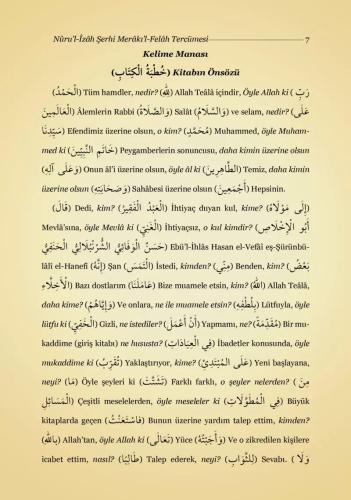 Nûru'l-Îzâh Şerhi Merâkı'l-Felâh Tercümesi 7
Kelime Manası
(خُطْبَةُ الْكِتَابِ) Kitabın Önsözü
(اَلْحَمْدُ) Tüm hamdler, nedir? (لِلّٰهِ) Allah Teâlâ içindir, Öyle Allah ki (رَبِّ
الْعَالَمِينَ) Âlemlerin Rabbi (وَالصَّلَاةُ) Salât (وَالسَّلَامُ) ve selam, nedir? (عَلَى
سَيِّدِنَا) Efendimiz üzerine olsun, o kim? (مُحَمَّدٍ) Muhammed, öyle Muham-
med ki (خَاتَمِ النَّبِيِّينَ) Peygamberlerin sonuncusu, daha kimin üzerine olsun
(وَعَلَى آلِهِ) Onun âl'i üzerine olsun, öyle âl ki (الطَّاهِرِينَ) Temiz, daha kimin
üzerine olsun (وَصَحَابَتِهِ) Sahâbesi üzerine olsun (أَجْمَعِينَ) Hepsinin.
(قَالَ) Dedi, kim? (الْعَبْدُ الْفَقِيرُ) İhtiyaç duyan kul, kime? (إِلَى مَوْلَاهُ)
Mevlâ'sına, öyle Mevlâ ki (الْغَنِيِّ) İhtiyaçsız, o kul kimdir? (أَبُو الْإِخْلَاصِ
حَسَنُ الْوَفَائِيُّ الشُّرُنْبُلَالِيُّ الْحَنَفِيُّ) Ebü'l-İhlâs Hasan el-Vefâî eş-Şürünbü-
lâlî el-Hanefî (إِنَّهُ) Şan (الْتَمَسَ) İstedi, kimden? (مِنِّي) Benden, kim? (بَعْضُ
الْأَخِلَّاءِ) Bazı dostlarım (عَامَلَنَا) Bize muamele etsin, kim? (اللهُ) Allah Teâlâ,
daha kime? (وَإِيَّاهُمْ) Ve onlara, ne ile muamele etsin? (بِلُطْفِهِ) Lütfuyla, öyle
lütfu ki (الْخَفِيِّ) Gizli, ne istediler? (أَنْ أَعْمَلَ) Yapmamı, ne? (مُقَدِّمَةً) Bir mu-
kaddime (giriş kitabı) ne hususta? (فِي الْعِبَادَاتِ) İbadetler konusunda, öyle
mukaddime ki (تُقَرِّبُ) Yaklaştırıyor, kime? (عَلَى الْمُبْتَدِئِ) Yeni başlayana,
neyi? (مَا) Öyle şeyleri ki (تَشَتَّتَ) Farklı farklı, o şeyler nelerden? (مِنَ
الْمَسَائِلِ) Çeşitli meselelerden, öyle meseleler ki (فِي الْمُطَوَّلَاتِ) Büyük
kitaplarda geçen (فَاسْتَعَنْتُ) Bunun üzerine yardım talep ettim, kimden?
(بِاللهِ) Allah'tan, öyle Allah ki (تَعَالَى) Yüce (وَأَجَبْتُهُ) Ve o zikredilen kişilere
icabet ettim, nasıl? (طَالِبًا) Talep ederek, neyi? (لِلثَّوَابِ) Sevabı. (وَلَا